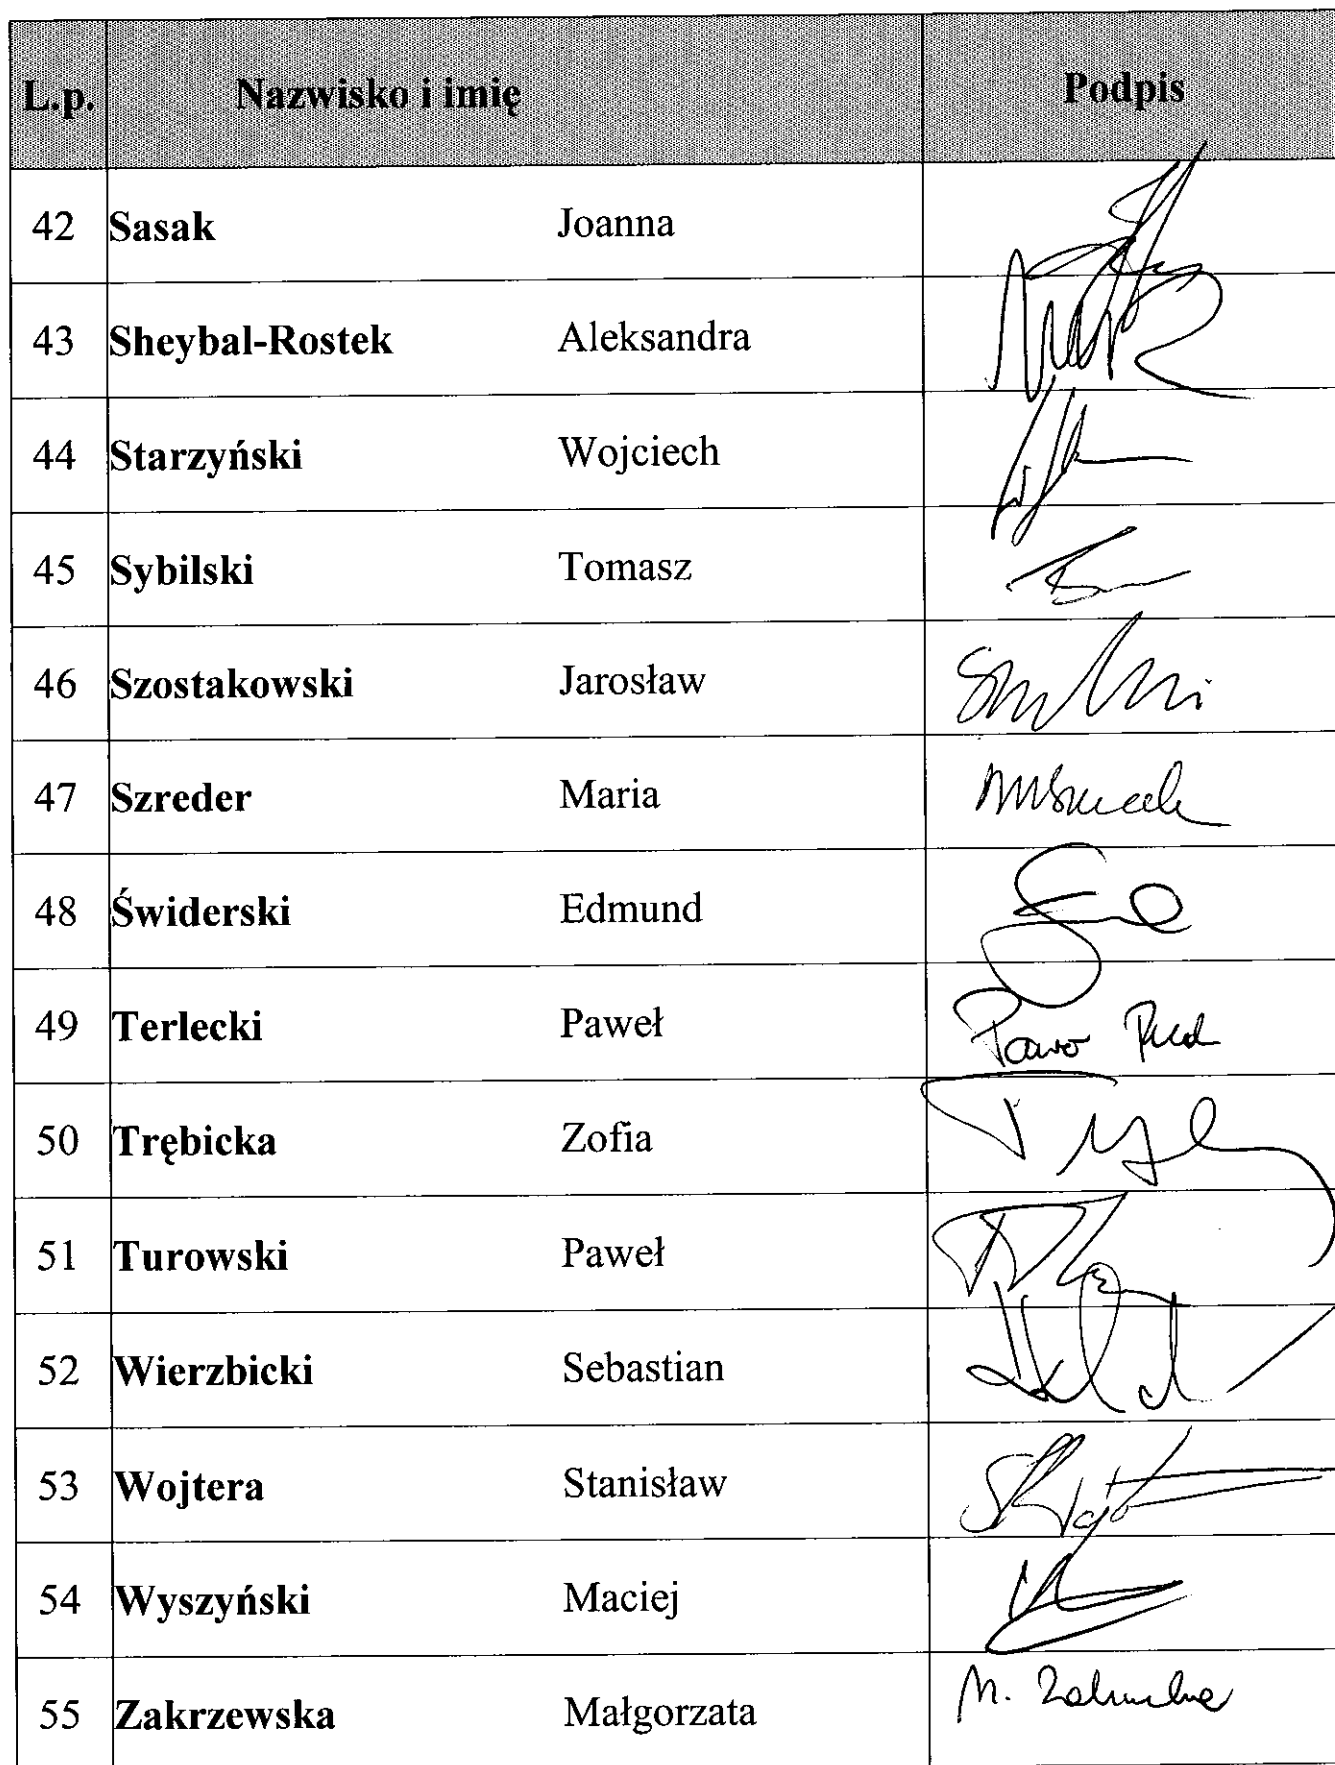 L.p. Nazwisko i imię Podpis
42 Sasak Joanna
43 Sheybal-Rostek Aleksandra
44 Starzyński Wojciech
45 Sybilski Tomasz
46 Szostakowski Jarosław
47 Szreder Maria
48 Świderski Edmund
49 Terlecki Paweł
50 Trębicka Zofia
51 Turowski Paweł
52 Wierzbicki Sebastian
53 Wojtera Stanisław
54 Wyszyński Maciej
55 Zakrzewska Małgorzata M.